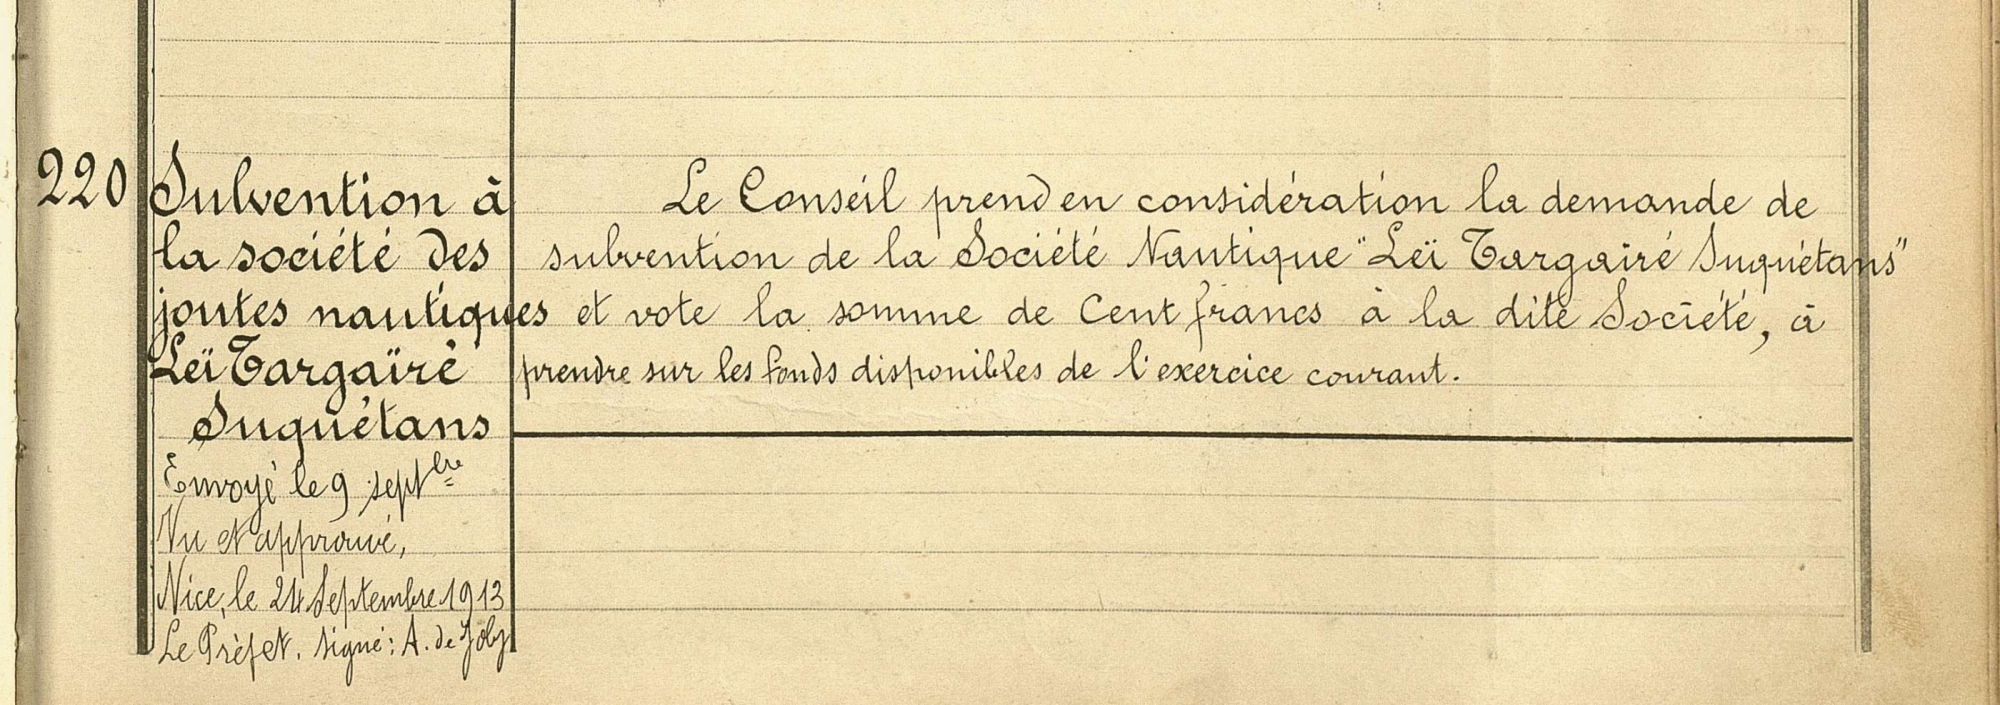 220
Subvention à
la société des
joutes nautiques
Leï Targaïré
Suquétans
Envoyé le 9 sept.bre
Vu et approuvé,
Nice, le 24 Septembre 1913
Le Préfet. signé: A. de Joly
Le Conseil prend en considération la demande de
subvention de la Société Nautique "Leï Targaïré Suquétans"
et vote la somme de Cent francs à la dite Société, à
prendre sur les fonds disponibles de l'exercice courant.